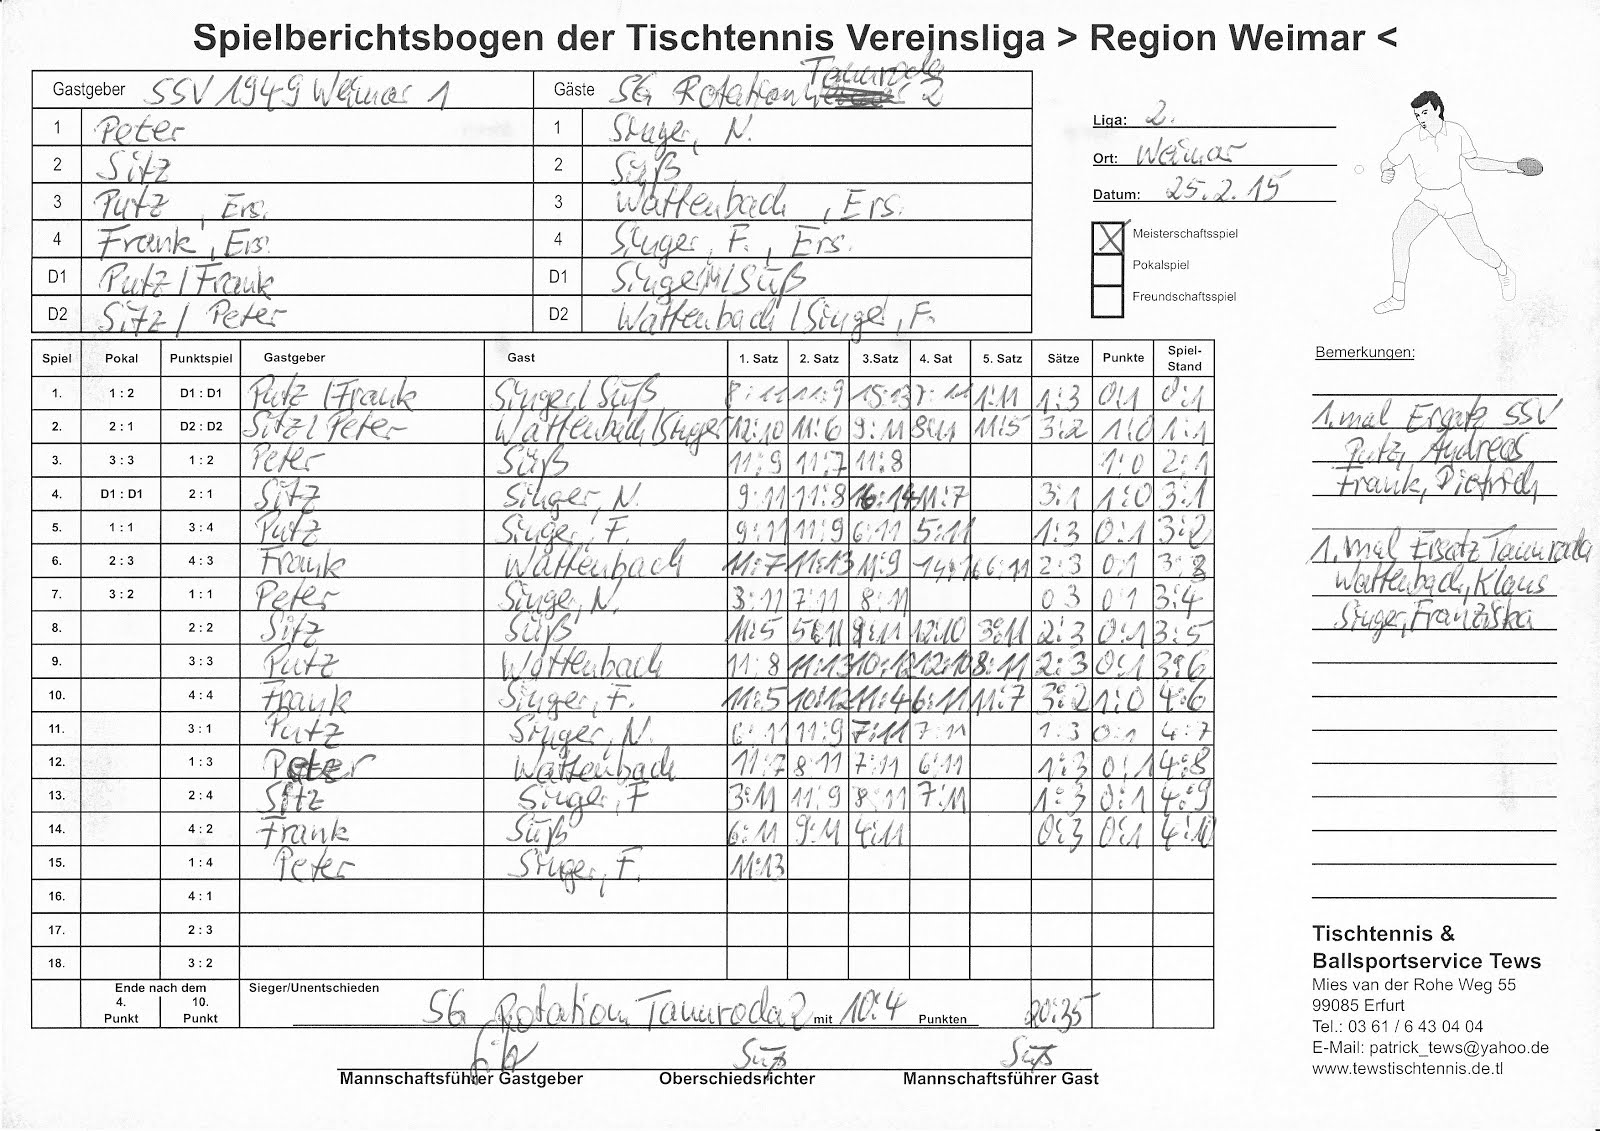 Spielberichtsbogen der Tischtennis Vereinsliga > Region Weimar <
Gastgeber SSV 1949 Weimar 1 Gäste SG Rotation Tannroda 2
1 Peter 1 Singer, N.
2 Sitz 2 Süß
3 Putz , Ers. 3 Wattenbach , Ers.
4 Frank , Ers. 4 Singer, F. , Ers.
D1 Putz / Frank D1 Singer, N / Süß
D2 Sitz / Peter D2 Wattenbach / Singer, F.
Liga: 2.
Ort: Weimar
Datum: 25.2.15
X Meisterschaftsspiel
Pokalspiel
Freundschaftsspiel
Spiel Pokal Punktspiel Gastgeber Gast 1. Satz 2. Satz 3.Satz 4. Sat 5. Satz Sätze Punkte Spiel-Stand
1. 1 : 2 D1 : D1 Putz / Frank Singer / Süß 8:11 11:9 15:13 7:11 1:11 1:3 0:1 0:1
2. 2 : 1 D2 : D2 Sitz / Peter Wattenbach / Singer 12:10 11:6 9:11 8:11 11:5 3:2 1:0 1:1
3. 3 : 3 1 : 2 Peter Süß 11:9 11:7 11:8 1:0 2:1
4. D1 : D1 2 : 1 Sitz Singer, N. 9:11 11:8 16:14 11:7 3:1 1:0 3:1
5. 1 : 1 3 : 4 Putz Singer, F. 9:11 11:9 6:11 5:11 1:3 0:1 3:2
6. 2 : 3 4 : 3 Frank Wattenbach 11:7 11:13 11:9 14:16 6:11 2:3 0:1 3:3
7. 3 : 2 1 : 1 Peter Singer, N. 3:11 7:11 8:11 0 3 0:1 3:4
8. 2 : 2 Sitz Süß 11:5 5:11 9:11 12:10 3:11 2:3 0:1 3:5
9. 3 : 3 Putz Wattenbach 11:8 11:13 10:12 12:10 8:11 2:3 0:1 3:6
10. 4 : 4 Frank Singer, F. 11:5 10:12 11:4 6:11 11:7 3:2 1:0 4:6
11. 3 : 1 Putz Singer, N. 6:11 11:9 7:11 7:11 1:3 0:1 4:7
12. 1 : 3 Peter Wattenbach 11:7 8:11 7:11 6:11 1:3 0:1 4:8
13. 2 : 4 Sitz Singer, F 3:11 11:9 8:11 7:11 1:3 0:1 4:9
14. 4 : 2 Frank Süß 6:11 9:11 4:11 0:3 0:1 4:10
15. 1 : 4 Peter Singer, F. 11:13
16. 4 : 1
17. 2 : 3
18. 3 : 2
Ende nach dem
4. Punkt 10. Punkt
Sieger/Unentschieden
SG Rotation Tannroda 2 mit 10:4 Punkten 20:35
Süß Süß
Mannschaftsführer Gastgeber Oberschiedsrichter Mannschaftsführer Gast
Bemerkungen:
1. mal Ersatz SSV
Putz, Andreas
Frank, Dietrich
1. mal Ersatz Tannroda
Wattenbach, Klaus
Singer, Franziska
Tischtennis &
Ballsportservice Tews
Mies van der Rohe Weg 55
99085 Erfurt
Tel.: 03 61 / 6 43 04 04
E-Mail: patrick_tews@yahoo.de
www.tewstischtennis.de.tl